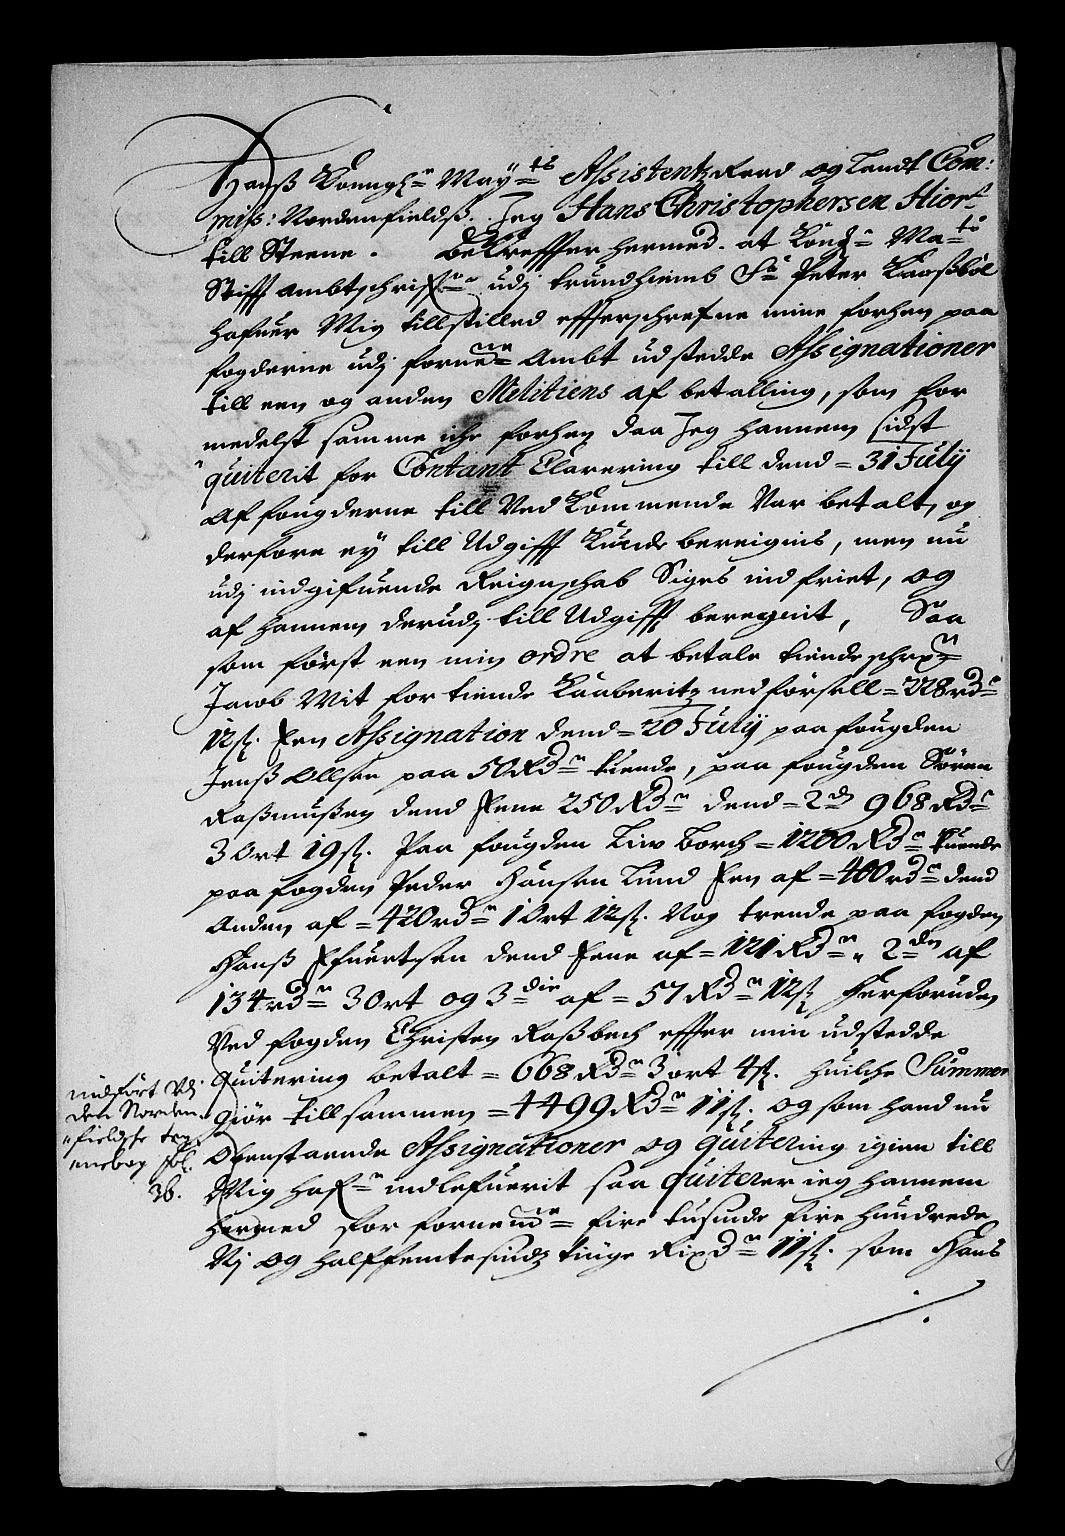 Hanß Konngl: May:ts Assistentz Raad og Landt Com:
miss: Nordenfieldß. Jeg Hans Christophersen Hiort
till Steene. Bekreffter hermed. at Kong: Ma:ts
Stifft ambtschrif:r udj trundhiembs Sr Peter Kaaßböl
hafuer Mig tillstilled effterschrefne mine forhen paa
fogderne udj forne:ne Ambt udstedde Assignationer
till een og anden Melitiens af betalling, som for
medelst samme iche forhen daa Jeg hannem sidst
quiterit for Contant Clarering till dend 31 July
Af fougderne till Vedkommende Var betalt, og
derfore ey till Udgifft kunde beregnis, men nu
udj indgifuende Reignschab Siges indfriet, og
af hannem derudj till Udgifft beregnit, Saa
som först een min ordre at betale tiende schr:
Jacob Wit for tiende Kaaberitz nedförsell 228 rd:r
12 sk. Een Assignation dend 20 July paa fougden
Jenß Ollsen paa 50 Rd:r tuende, paa fougden Sören
Raßmußen dend Eene 250 Rd:r dend 2:de 968 Rd:r
3 Ort 19 sk. Paa fougden Liw Borch 1200 Rd:r tuende
paa fogden Peder Hansen Lund Een af 400 rd:r dend
Anden af 420 rd:r 1 Ort 12 sk. Nog trende paa fogden
Hanß Efuertsen dend Eene af 121 Rd:r 2:den af
134 rd:r 3 Ort og 3:die af 57 Rd:r 12 sk Herforuden
Ved fogden Christen Raßbech effter min udstedde
Quitering betalt 668 Rd:r 3 ort 4 sk. huilche Summer
Giör tillsammen 4499 Rd:r 11 sk. og som hand nu
Ofenstaaende Assignationer og quitering igien till
Mig haf:r indlefuerit saa quiterer ieg hannem
hermed for forne:nde fire tusinde fire hundrede
Nj og halffemtesindz tiuge Rixd:r 11 sk. som Hans
indfört Udj
den Norden
fieldsche
bog fol.
36.